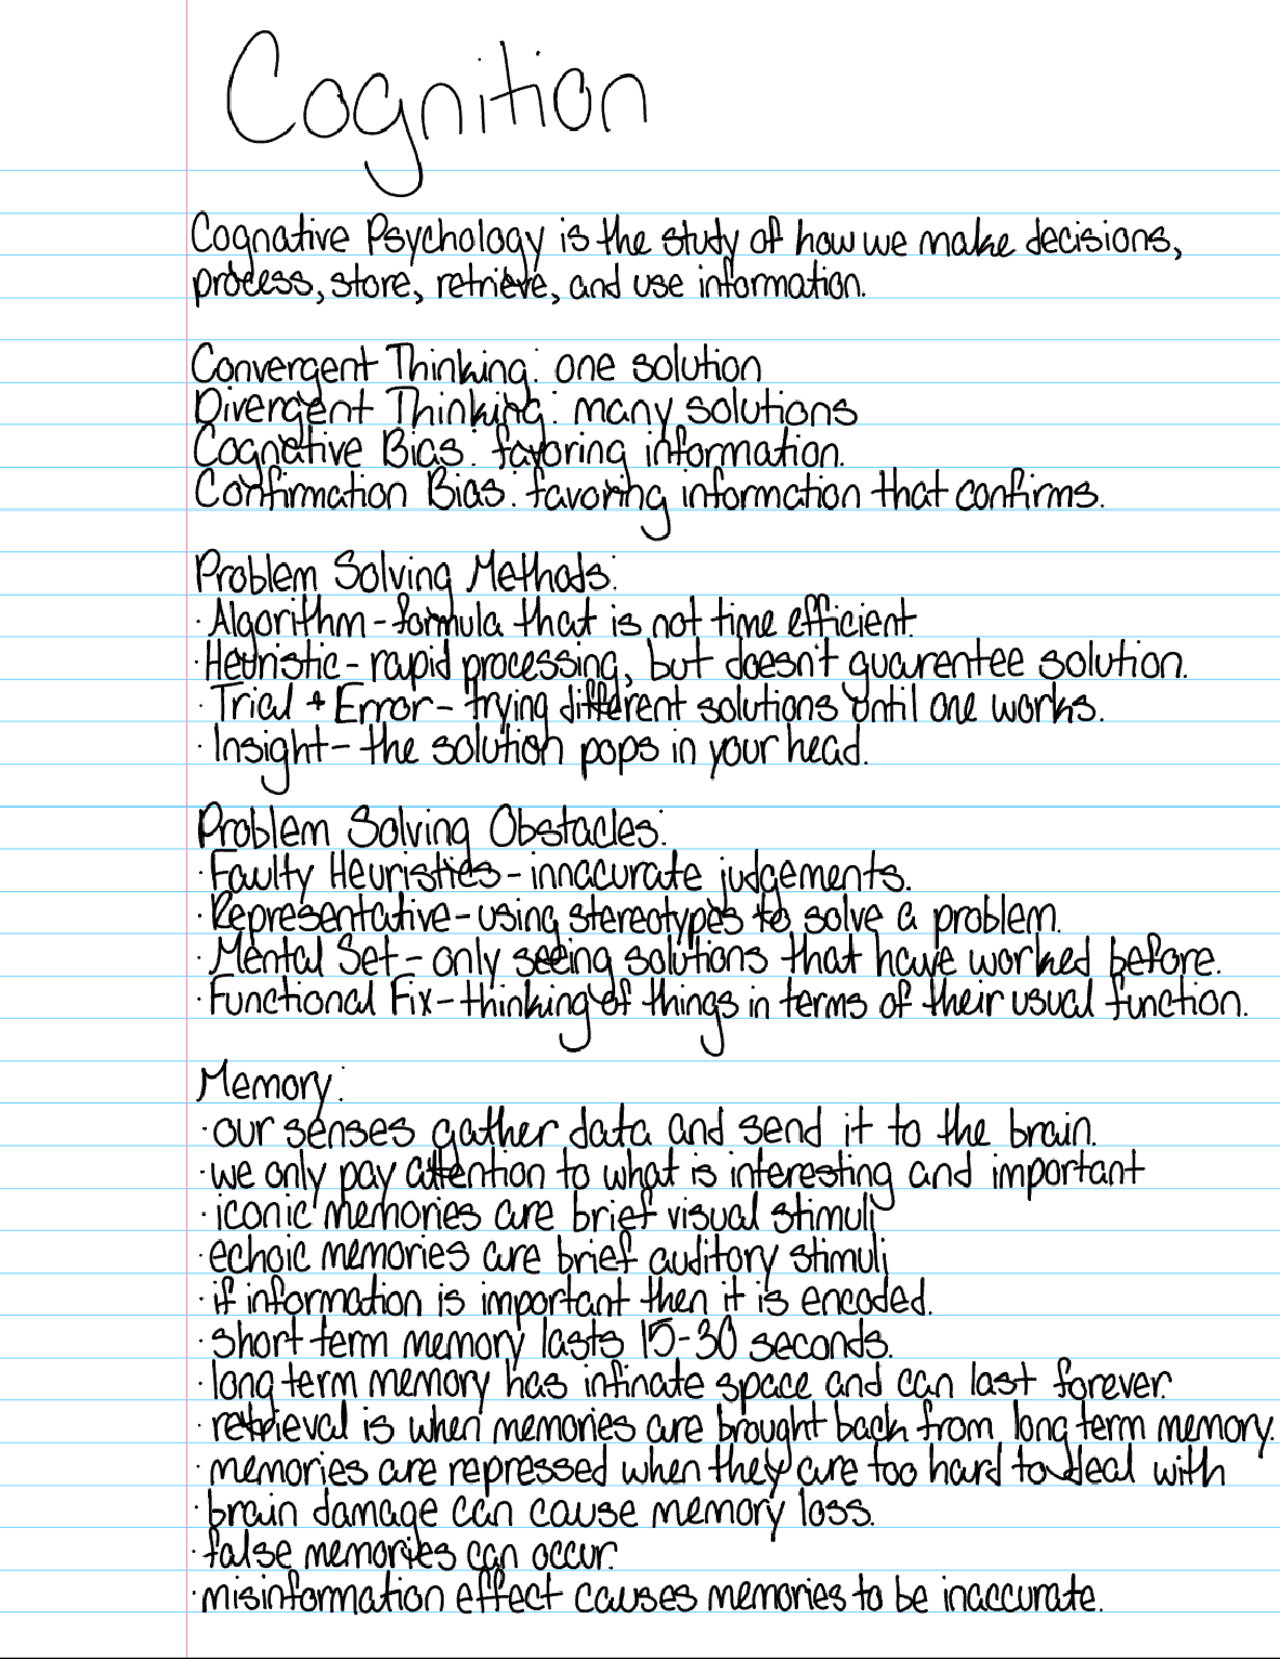 Cognition
Cognative Psychology is the study of how we make decisions,
process, store, retrieve, and use information.
Convergent Thinking: one solution
Divergent Thinking: many solutions
Cognative Bias: favoring information.
Confirmation Bias: favoring information that confirms.
Problem Solving Methods:
· Algorithm - formula that is not time efficient.
· Heuristic - rapid processing, but doesn't guarentee solution.
· Trial + Error - trying different solutions until one works.
· Insight - the solution pops in your head.
Problem Solving Obstacles:
· Faulty Heuristics - innacurate judgements.
· Representative - using stereotypes to solve a problem.
· Mental Set - only seeing solutions that have worked before.
· Functional Fix - thinking of things in terms of their usual function.
Memory:
· our senses gather data and send it to the brain.
· we only pay attention to what is interesting and important
· iconic memories are brief visual stimuli
· echoic memories are brief auditory stimuli
· if information is important then it is encoded.
· short term memory lasts 15-30 seconds.
· long term memory has infinate space and can last forever.
· retrieval is when memories are brought back from long term memory.
· memories are repressed when they are too hard to deal with
· brain damage can cause memory loss.
· false memories can occur.
· misinformation effect causes memories to be inaccurate.